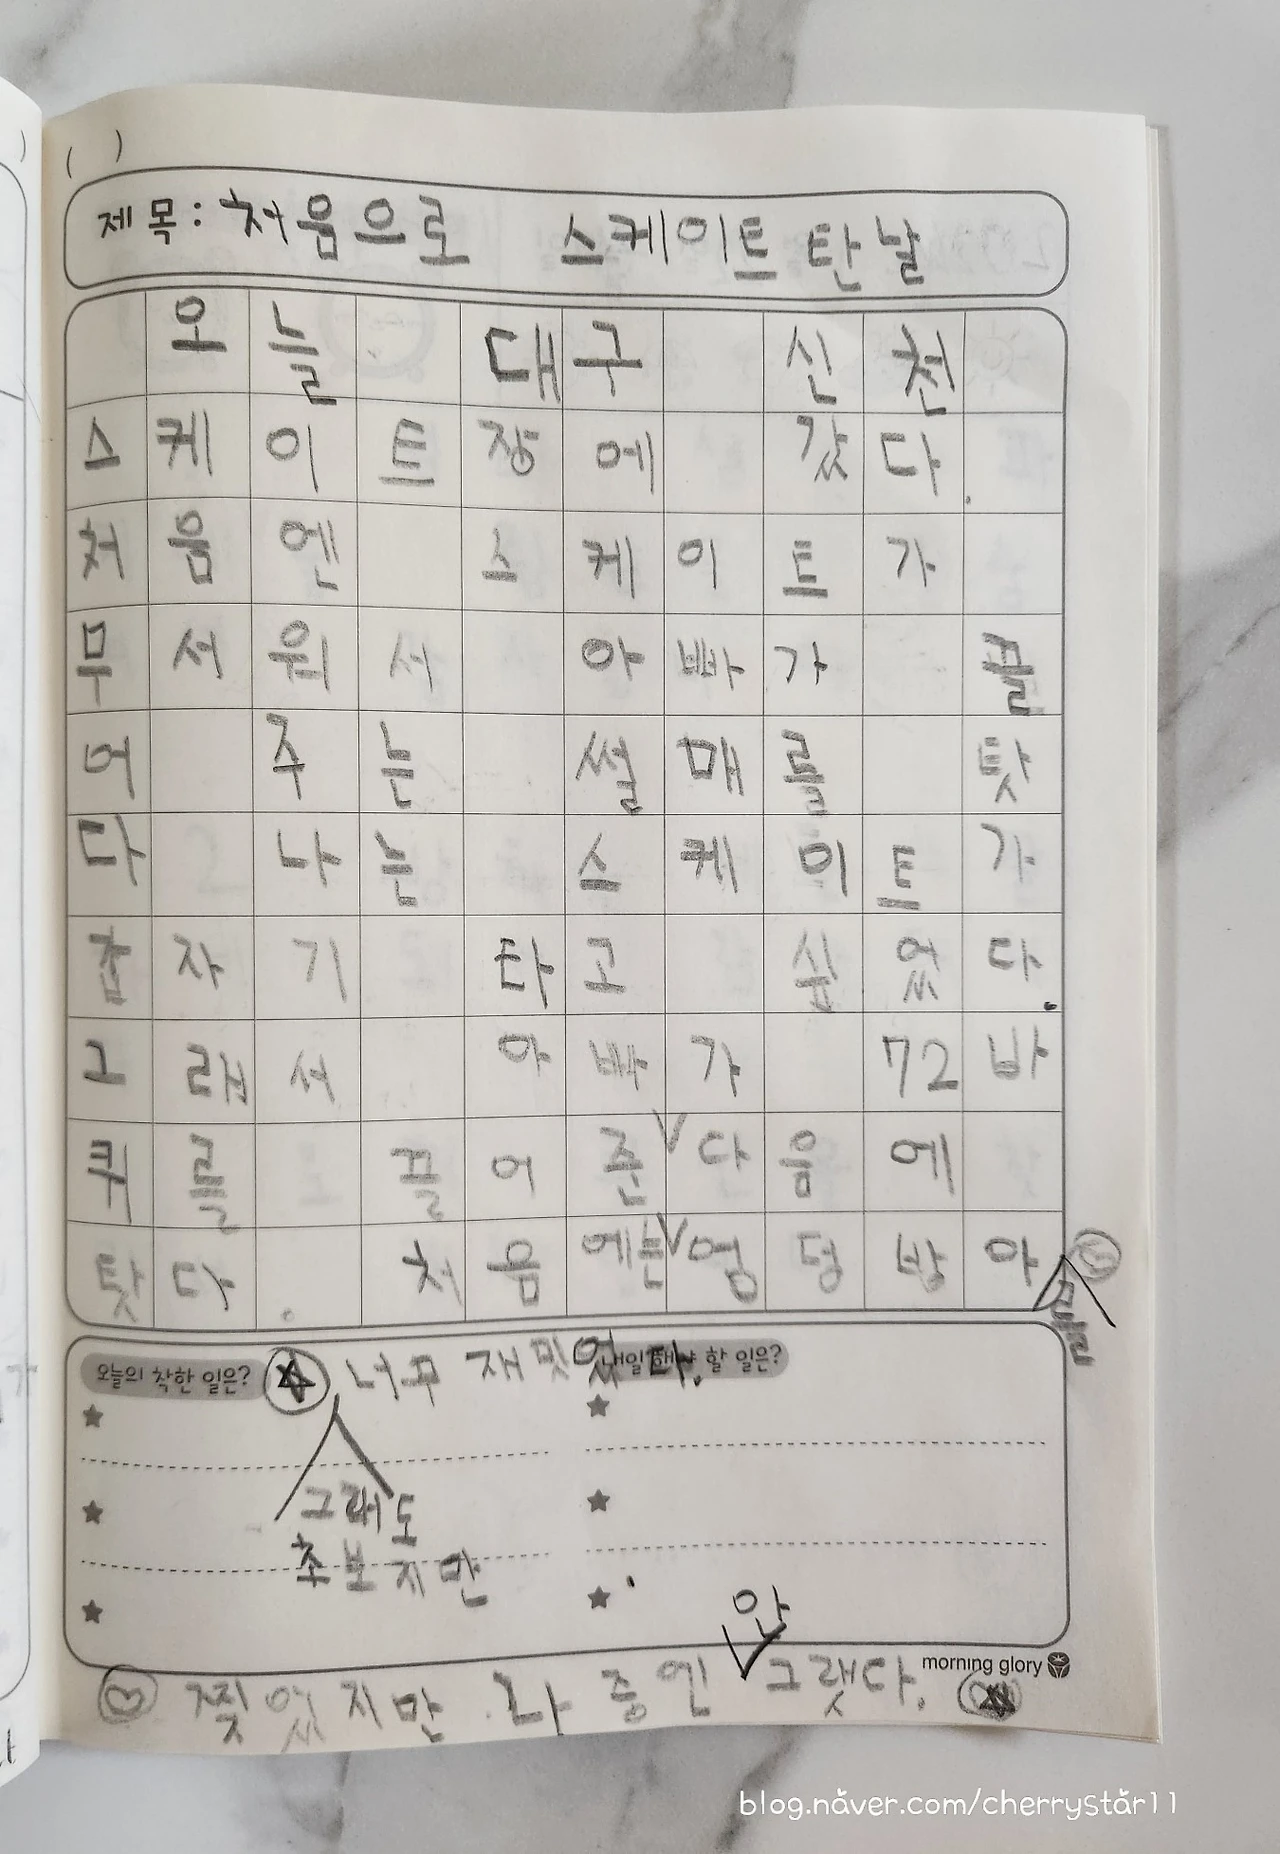 제목: 처음으로 스케이트 탄 날
오늘 대구 신천
스케이트장에 갔다.
처음엔 스케이트가
무서워서 아빠가 끌
어 주는 썰매를 탓
다 나는 스케이트가
갑자기 타고 싶었다.
그래서 아빠가 72바
퀴를 끌어준∨다음에
탓다. 처음에는∨엉덩방아
오늘의 착한 일은? 너무 재밋었다. 내일 해야 할 일은?
그래도
초보지만
안
찧었지만 나중엔 그랫다.
morning glory
blog.naver.com/cherrystar11